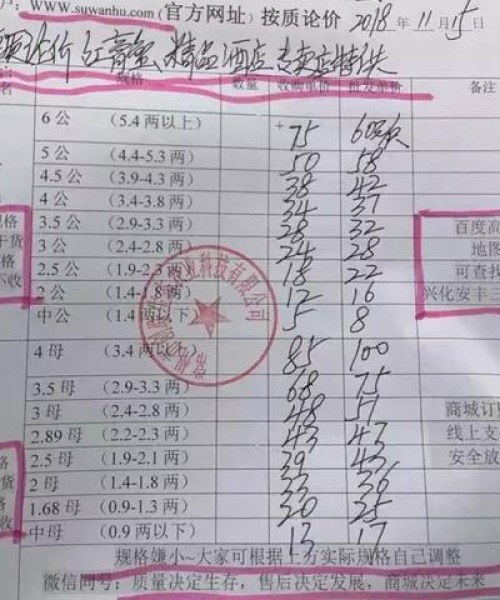 www.suwanhu.com (官方网址) 按质论价 2018年11月15日
论价 红膏蟹、精品酒店、专卖店特供
名 规格 数量 收购单价 批发单价 备注
6公 (5.4两以上) +75
5公 (4.4-5.3两) 50 58
4.5公 (3.9-4.3两) 38 42
4公 (3.4-3.8两) 34 37
3.5公 (2.9-3.3两) 28 32
3公 (2.4-2.8两) 24 28
2.5公 (1.9-2.3两) 18 22
2公 (1.4-1.8两) 12 16
中公 (1.4两以下) 5 8
4母 (3.4两以上) 85 100
3.5母 (2.9-3.3两) 68 75
3母 (2.4-2.8两) 48 57
2.89母 (2.2-2.3两) 43 47
2.5母 (1.9-2.1两) 39 43
2母 (1.4-1.8两) 33 36
1.68母 (0.9-1.3两) 20 25
中母 (0.9两以下) 13 17
规格
干货
格
不收
百度高
地图
可查找
兴化安丰三
商城订购
线上支
安全放
格
货
格
收
业科技有限公司
规格嫌小~大家可根据上方实际规格自己调整
微信同号：质量决定生存，售后决定发展，商城决定未来